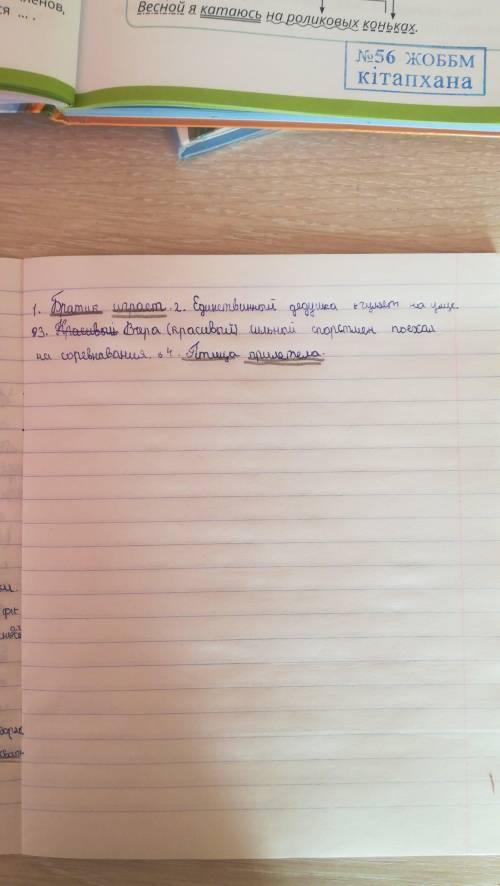 ленов,
ся ... .
Весной я катаюсь на роликовых коньках.
№56 ЖОББМ
кітапхана
1. Братик играет. 2. Единственный дедушка гуляет на улице
3. Красивый Вчера (красивый) сильной спортсмен поехал
на соревнавания. 4. Птица прилетела.